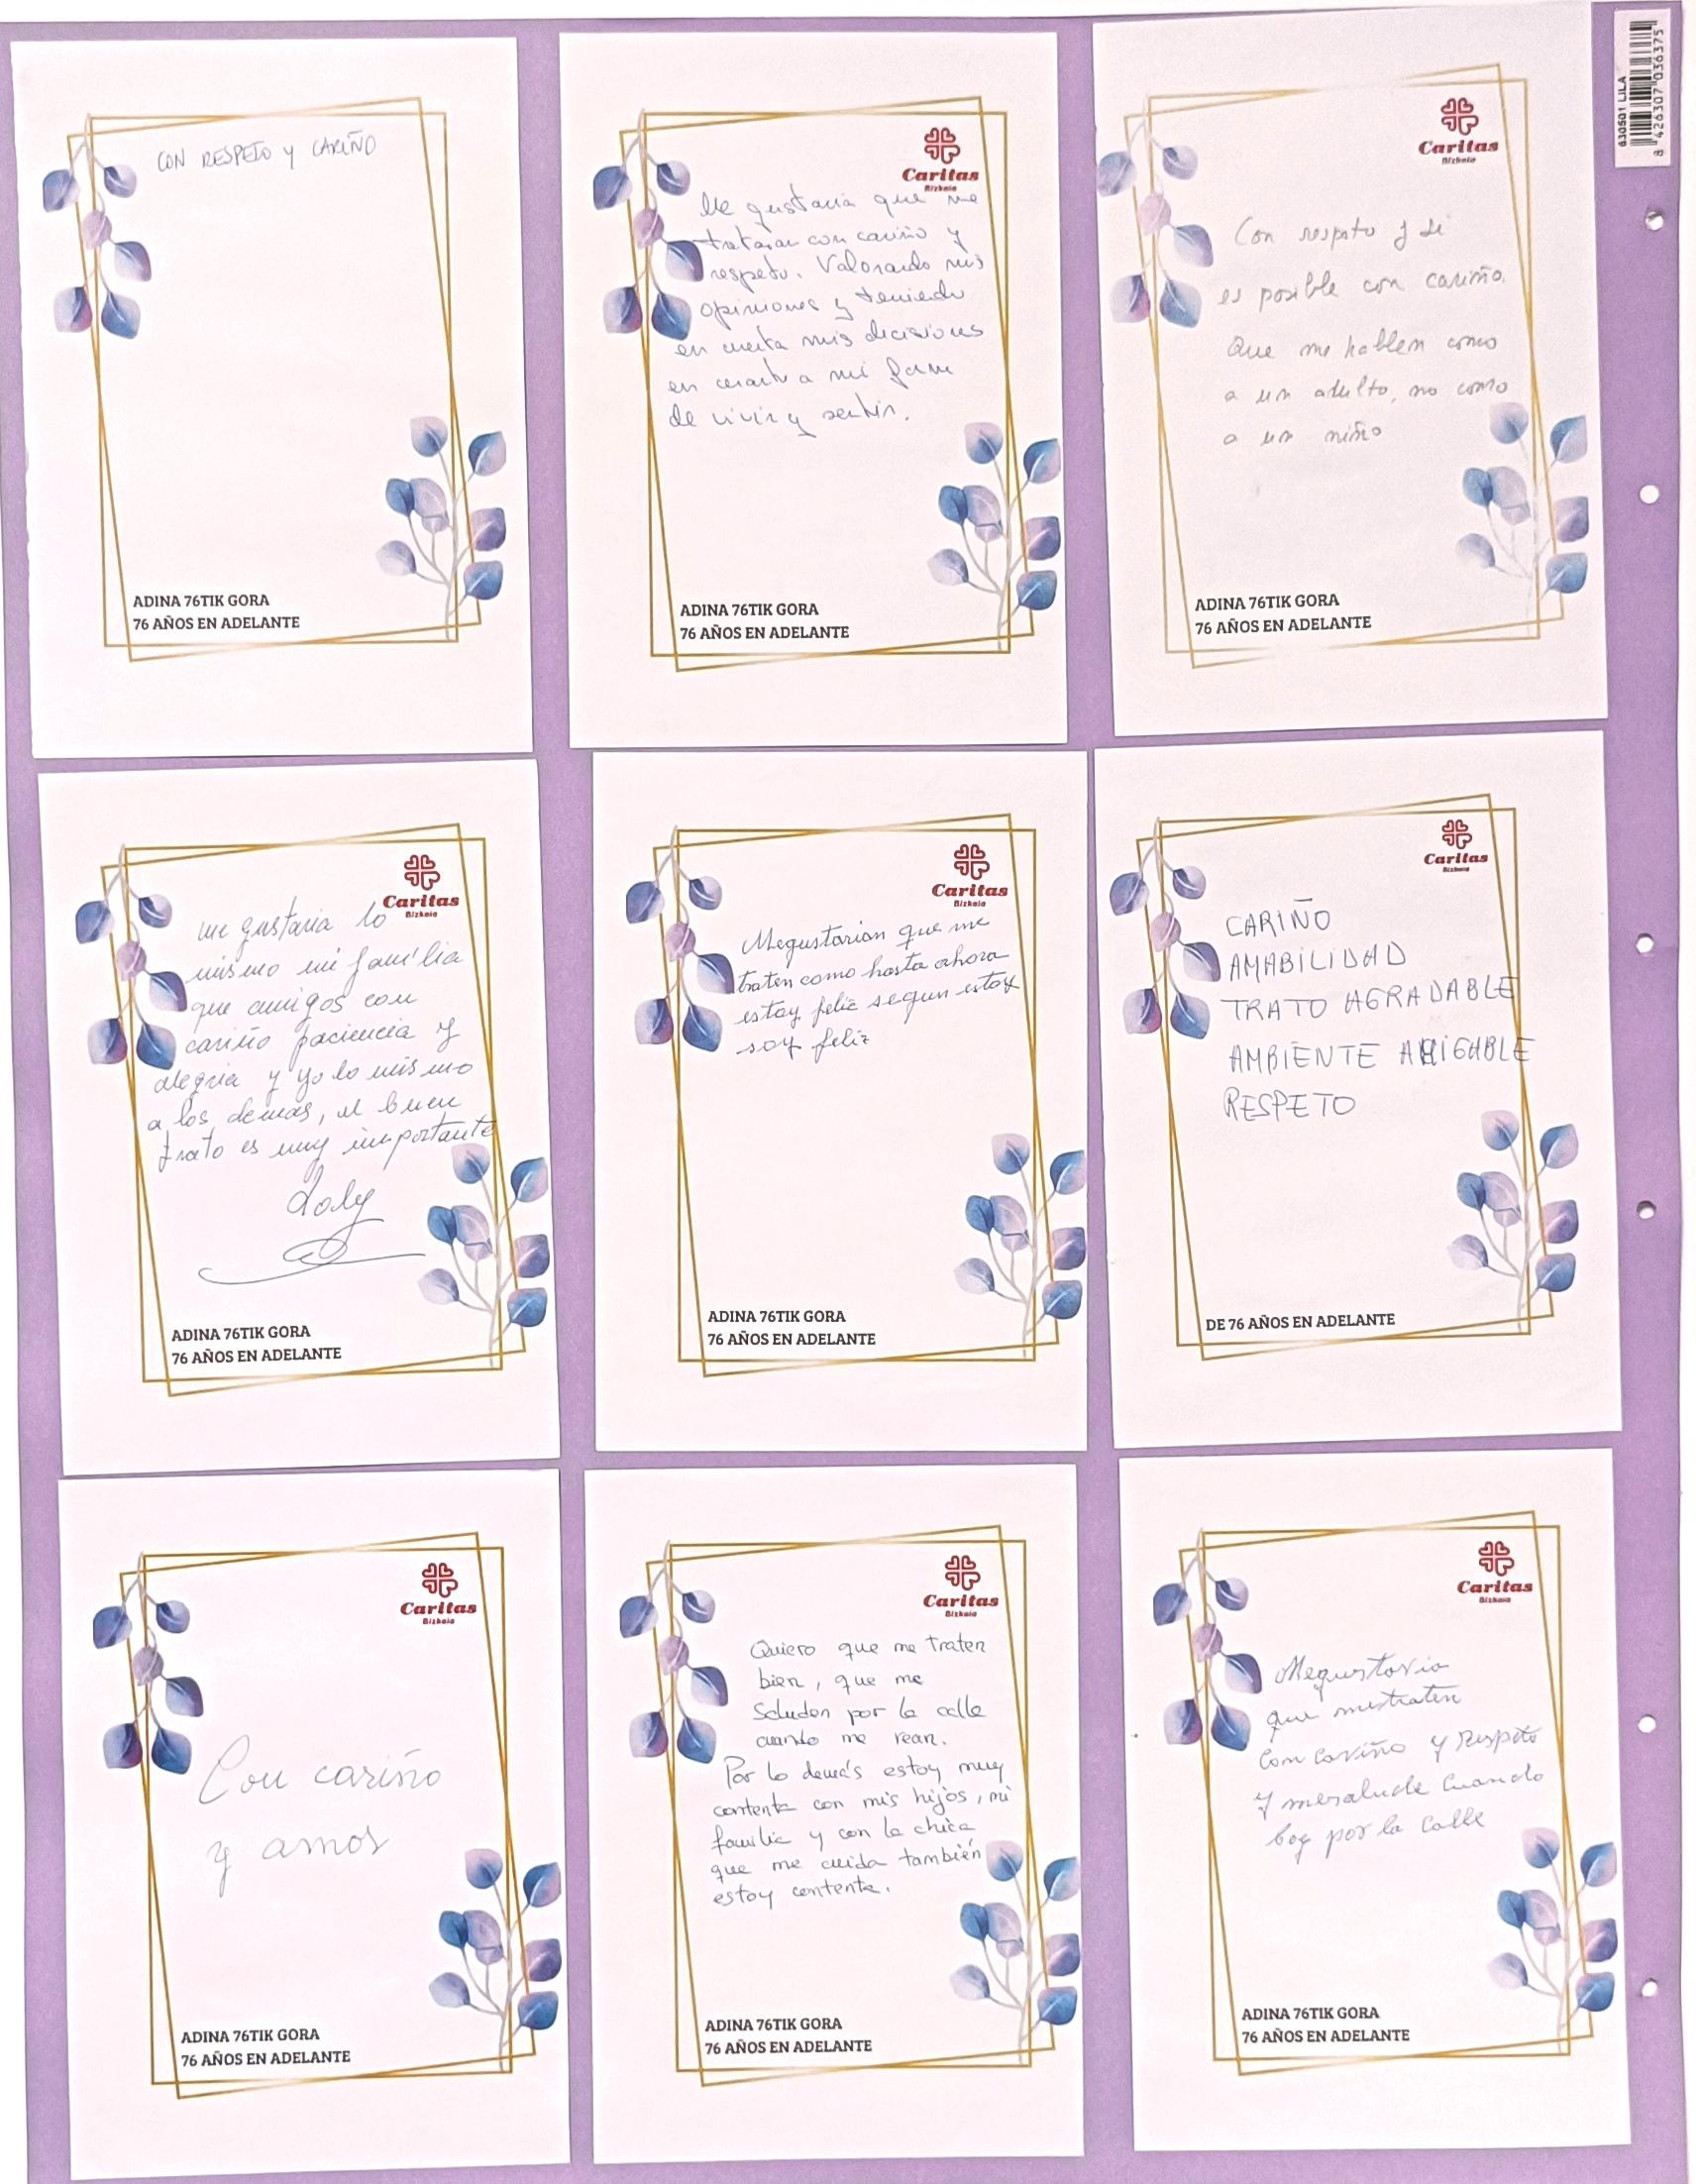 630501 LILA
8 426307 036375
CON RESPETO Y CARIÑO
ADINA 76TIK GORA
76 AÑOS EN ADELANTE
Caritas
Bizkaia
Me gustaria que me
trataran con cariño y
respeto. Valorando mis
opiniones y teniendo
en cuenta mis decisiones
en cuanto a mi forma
de vivir y sentir.
ADINA 76TIK GORA
76 AÑOS EN ADELANTE
Caritas
Bizkaia
Con respeto y si
es posible con cariño.
Que me hablen como
a un adulto, no como
a un niño
ADINA 76TIK GORA
76 AÑOS EN ADELANTE
Caritas
Bizkaia
me gustaria lo
mismo mi familia
que amigos con
cariño paciencia y
alegria y yo lo mismo
a los demas, el buen
trato es muy importante
Loly
ADINA 76TIK GORA
76 AÑOS EN ADELANTE
Caritas
Bizkaia
Megustarian que me
traten como hasta ahora
estoy feliz segun estoy
soy feliz
ADINA 76TIK GORA
76 AÑOS EN ADELANTE
Caritas
Bizkaia
CARIÑO
AMABILIDAD
TRATO AGRADABLE
AMBIENTE
RESPETO
DE 76 AÑOS EN ADELANTE
Caritas
Bizkaia
Con cariño
y amor
ADINA 76TIK GORA
76 AÑOS EN ADELANTE
Caritas
Bizkaia
Quiero que me traten
bien, que me
saluden por la calle
cuando me vean.
Por lo demás estoy muy
contenta con mis hijos, mi
familia y con la chica
que me cuida también
estoy contenta.
ADINA 76TIK GORA
76 AÑOS EN ADELANTE
Caritas
Bizkaia
Megustaria
que mestraten
Con Cariño y Respeto
y mesalude Cuando
boy por la Calle
ADINA 76TIK GORA
76 AÑOS EN ADELANTE